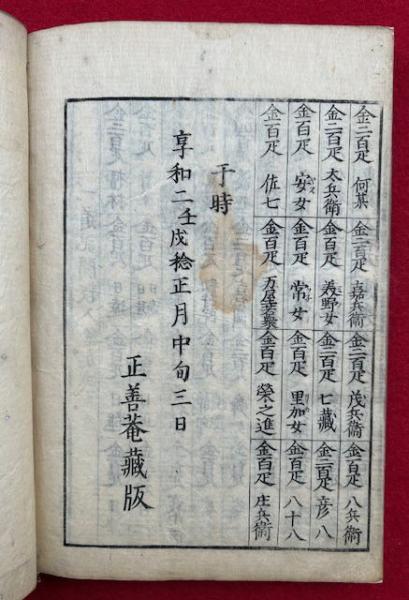 金二百疋 何某 金二百疋 嘉兵衛 金二百疋 茂兵衛 金百疋 八兵衛
金二百疋 太兵衛 金百疋 美野女 金二百疋 七藏 金二百疋 彦八
金百疋 安女 金百疋 常女 金百疋 里加女 金百疋 八十八
金百疋 佐七 金百疋 万屋若衆 金百疋 榮之進 金百疋 庄兵衛
于時
享和二壬戌稔正月中旬三日
正善菴藏版